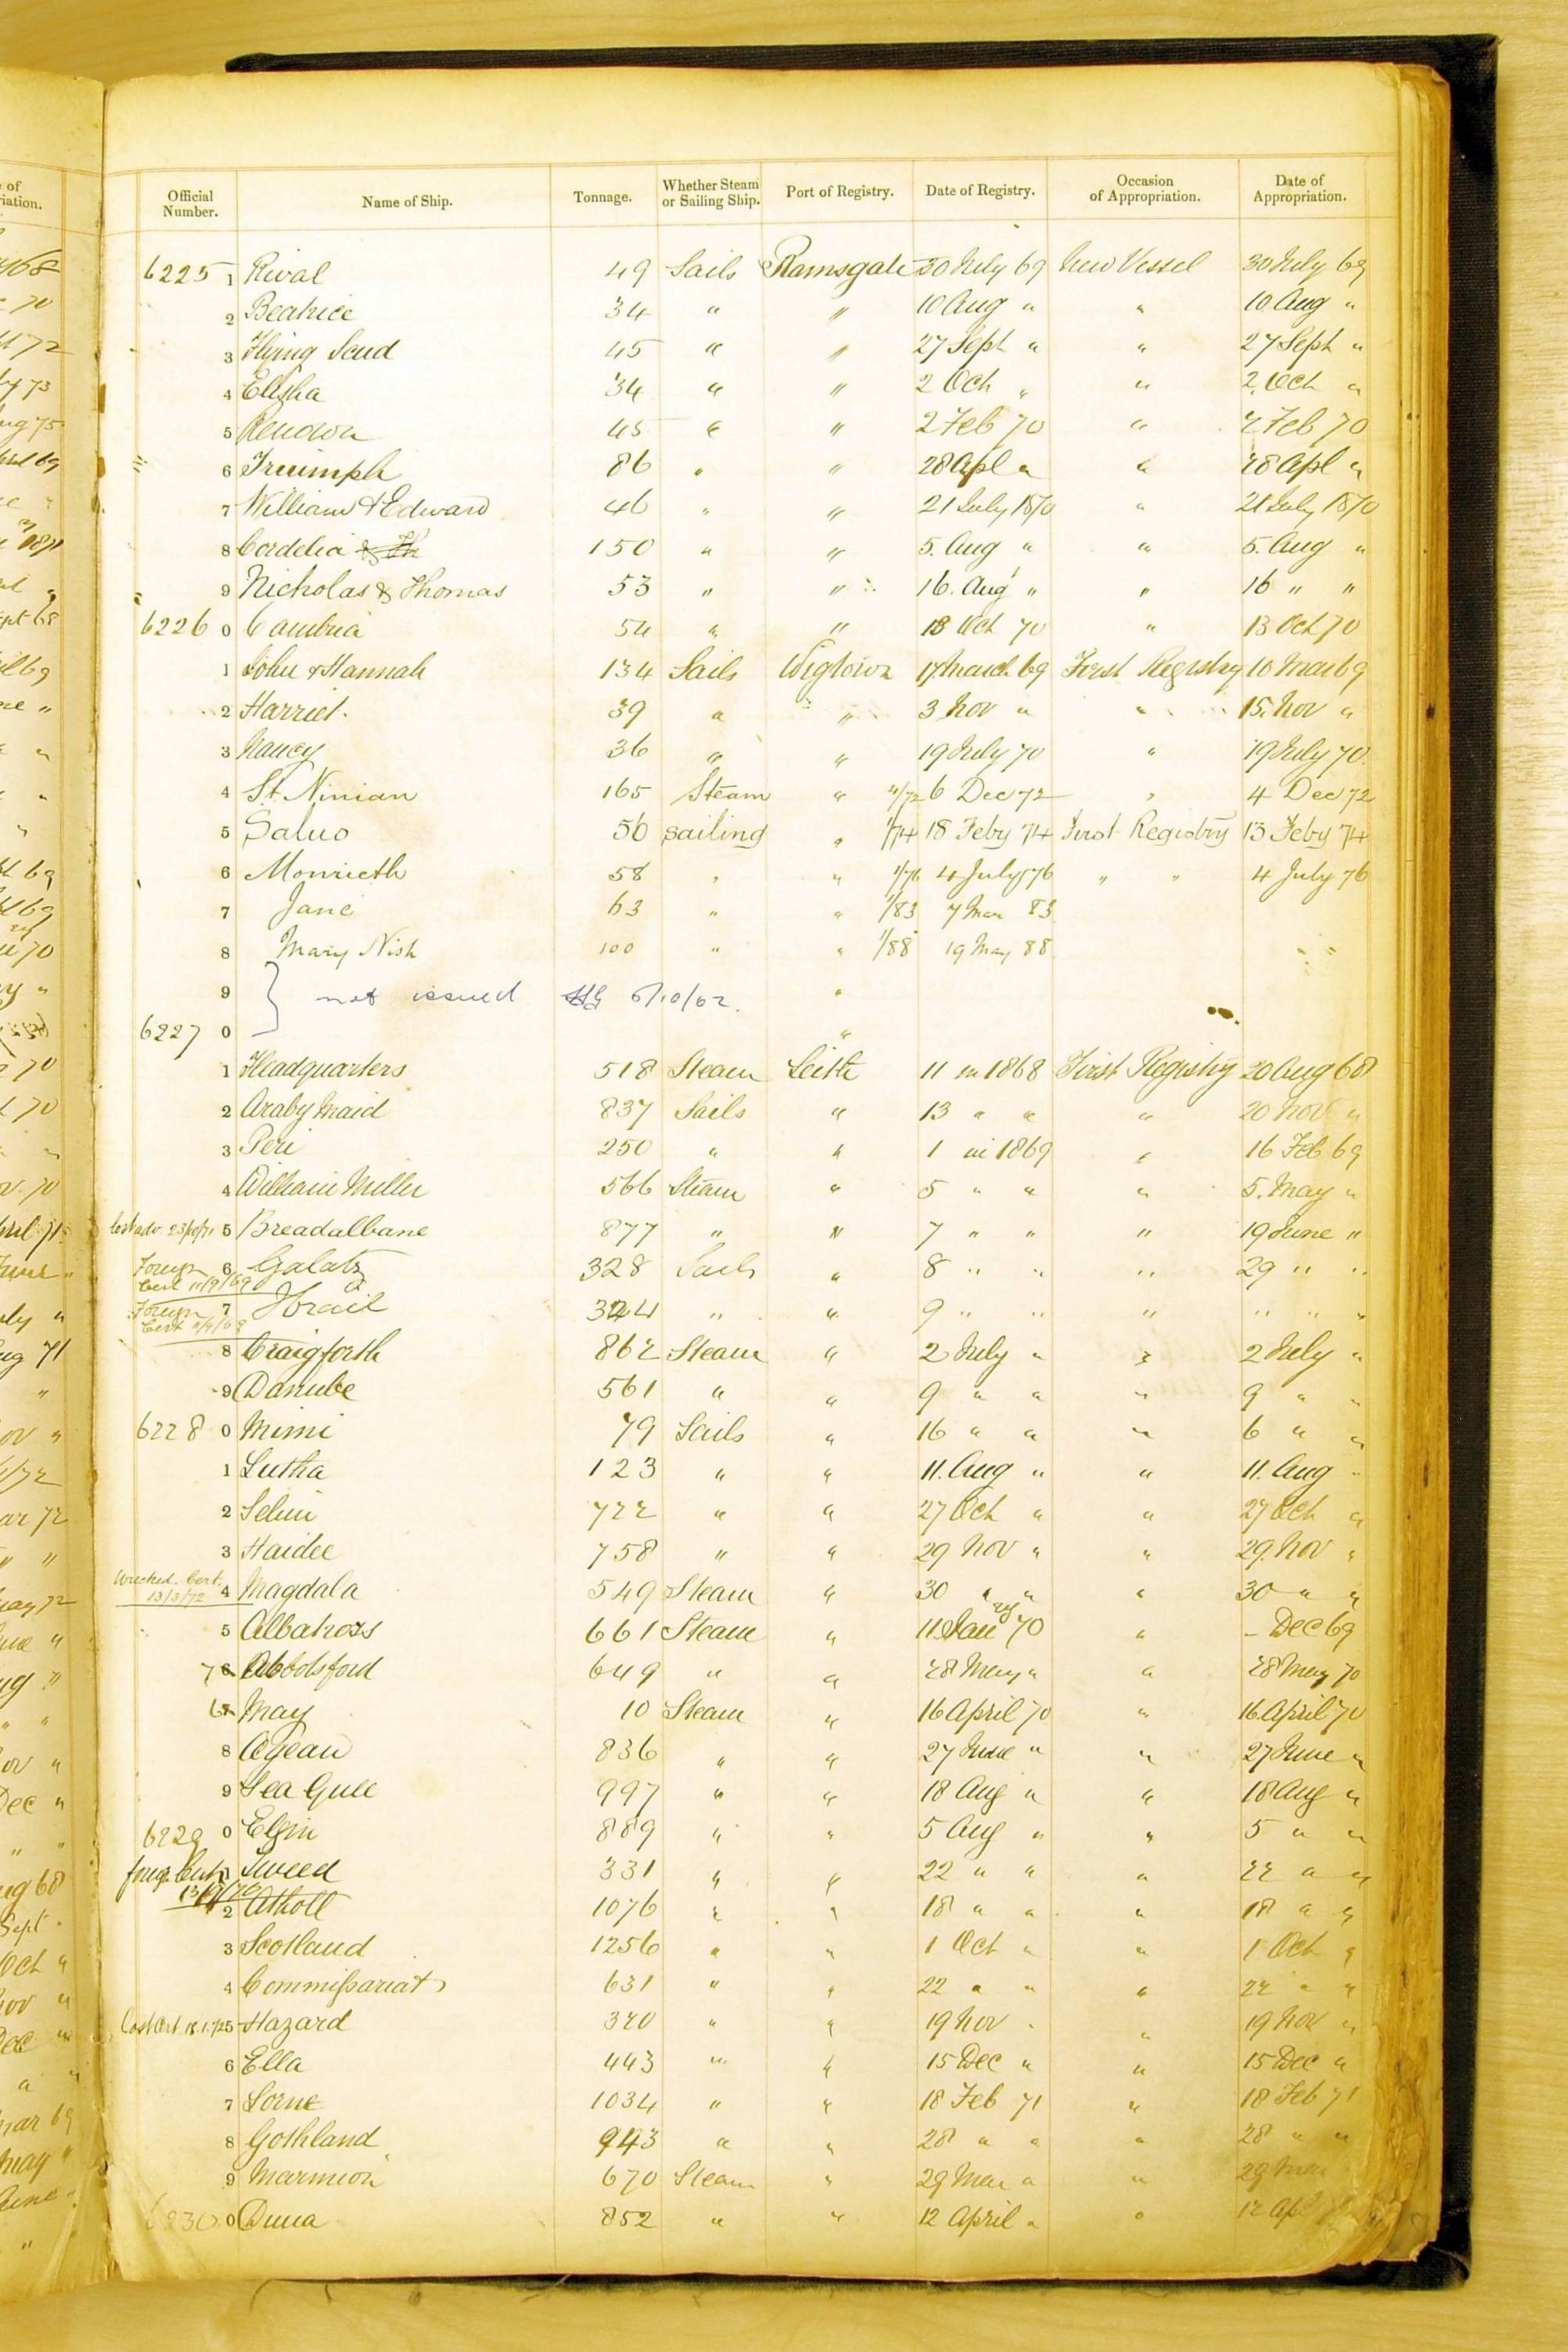 Official Number. Name of Ship. Tonnage. Whether Steam or Sailing Ship. Port of Registry. Date of Registry. Occasion of Appropriation. Date of Appropriation.
6225 1 Rival 49 Sails Ramsgate 30 July 69 New Vessel 30 July 69
2 Beatrice 34 " " 10 Aug " " 10 Aug "
3 Flying Scud 45 " " 27 Sept " " 27 Sept "
4 Elisha 34 " " 2 Oct " " 2 Oct "
5 45 " " 2 Feb 70 " 2 Feb 70
6 Triumph 86 " " 28 Apl " " 28 Apl "
7 William & Edward 46 " " 21 July 1870 " 21 July 1870
8 Cordelia 150 " " 5. Aug " " 5. Aug "
9 Nicholas & Thomas 53 " " 16. Aug " " 16 " "
6226 0 Cambria 54 " " 13 Oct 70 " 13 Oct 70
1 John & Hannah 134 Sails Wigtown 17 March 69 First Registry 10 Mar 69
2 Harriet 39 " " 3 Nov " " 15. Nov "
3 Nancy 36 " " 19 July 70 " 19 July 70
4 St. Ninian 165 Steam " 6 Dec 72 " 4 Dec 72
5 56 sailing " 1/74 18 Feby 74 First Registry 13 Feby 74
6 Monrieth 58 " " 1/76 4 July 76 " " 4 July 76
7 Jane 63 " " 1/83 7 Mar 83
8 Mary Nish 100 " " 1/88 19 May 88 " "
9 } not issued 6/10/62. "
6227 0 "
1 Headquarters 518 Steam Leith 11 in 1868 First Registry 20 Aug 68
2 Araby Maid 837 Sails " 13 " " " 20 Nov "
3 Peri 250 " " 1 in 1869 " 16 Feb 69
4 William Miller 566 Steam " 5 " " " 5. May "
5 Breadalbane 877 " " 7 " " " 19 June "
Foreign 6 Galatz 328 Sails " 8 " " " 29 " "
Cert 11/9/69
Foreign 7 Ibrail 324 " " 9 " " " " " "
Cert 11/9/69
8 Craigforth 862 Steam " 2 July " " 2 July "
9 Danube 561 " " 9 " " " 9 " "
6228 0 Mimi 79 Sails " 16 " " " 6 " "
1 Lutha 123 " " 11. Aug " " 11. Aug "
2 Selim 722 " " 27 Oct " " 27 Oct "
3 Haidee 758 " " 29 Nov " " 29. Nov "
Wrecked. Cert. 13/3/72 4 Magdala 549 Steam " 30 " " " 30 " "
5 Albatross 661 Steam " 11 Jan 70 " - Dec 69
7 Abbotsford 649 " " 28 May " " 28 May 70
6 May 10 Steam " 16 April 70 " 16. April 70
8 Ægean 836 " " 27 June " " 27 June "
9 Sea Gull 997 " " 18 Aug " " 18 Aug "
6229 0 Elgin 889 " " 5 Aug " " 5 " "
1 Tweed 331 " " 22 " " " 22 " "
2 Atholl 1076 " " 18 " " " 18 " "
3 Scotland 1256 " " 1 Oct " " 1 Oct "
4 Commissariat 631 " " 22 " " " 22 " "
5 Hazard 320 " " 19 Nov " " 19 Nov "
6 Ella 443 " " 15 Dec " " 15 Dec "
7 Lorne 1034 " " 18 Feb 71 " 18 Feb 71
8 Gothland 943 " " 28 " " " 28 " "
9 Marmion 670 Steam " 29 Mar " " 29 Mar
6230 0 Duna 852 " " 12 April " " 12 Apl